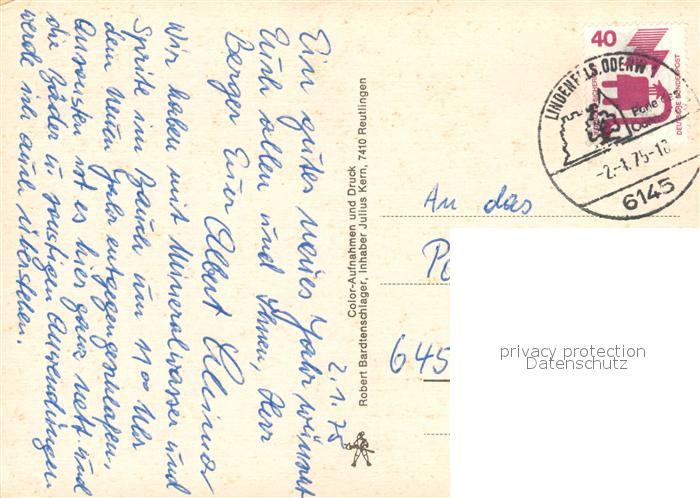 2.1.75
Ein gutes neues Jahr wünscht
Euch allen und Ihnen, Herr
Berger Euer Albert
Wir haben mit Mineralwasser und
Sprite im Zelte um 11°° Uhr
dem Neuen Jahr entgegengeschlafen.
Ansonsten ist es hier ganz nett und
die Bäder u. sonstigen Anwendungen
werde ich auch überstehen.
Color-Aufnahmen und Druck
Robert Bardtenschlager, Inhaber Julius Kern, 7410 Reutlingen
40
DEUTSCHE BUNDESPOST
LINDENFELS, ODENW 1
Perle des
-2.-1.75-18
6145
An das
645
privacy protection
Datenschutz